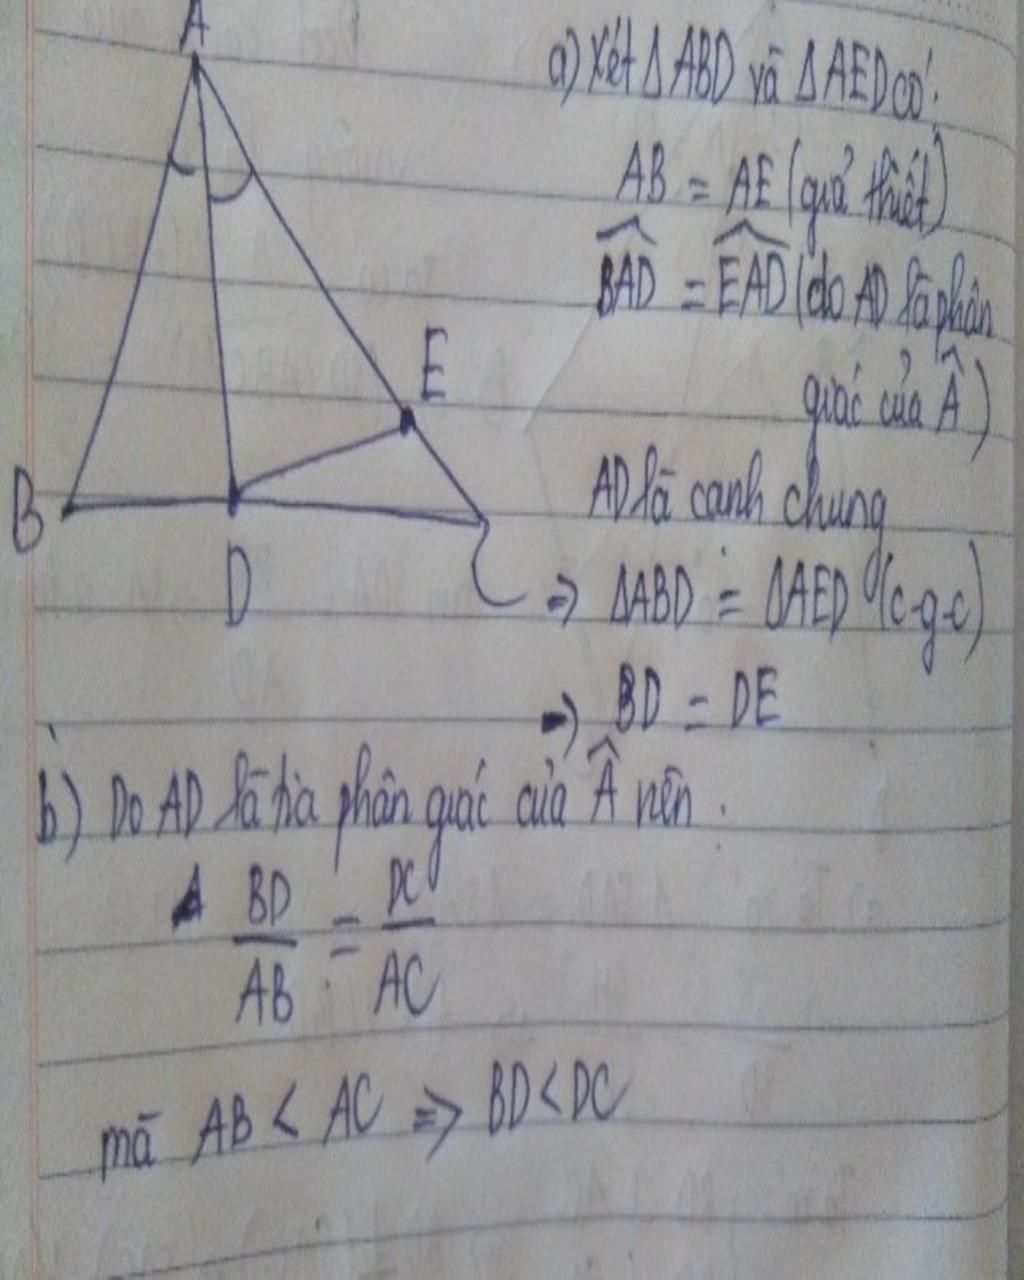 A
a) Xét Δ ABD và Δ AED có:
AB = AE (giả thiết)
BAD = EAD (do AD là phân
giác của Â)
E
AD là cạnh chung
B
D
C
=> ΔABD = ΔAED (c-g-c)
=> BD = DE
b) Do AD là tia phân giác của Â nên
BD = DC
AB AC
mà AB < AC => BD < DC